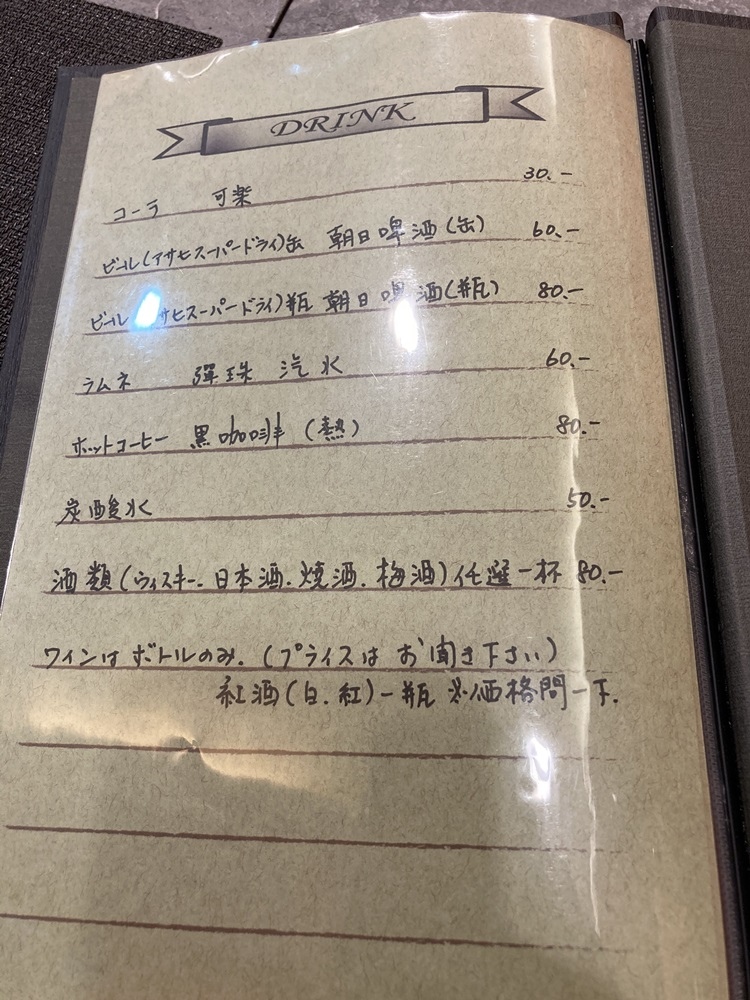 DRINK
コーラ 可楽 30.-
ビール(アサヒスーパードライ)缶 朝日啤酒(缶) 60.-
ビール サヒスーパードライ)瓶 朝日啤酒(瓶) 80.-
ラムネ 彈珠汽水 60.-
ホットコーヒー 黒咖啡(熱) 80.-
炭酸水 50.-
酒類(ウィスキー.日本酒.焼酒.梅酒)任選一杯 80.-
ワインはボトルのみ.(プライスはお聞き下さい)
紅酒(白.紅)一瓶 ※価格問一下.